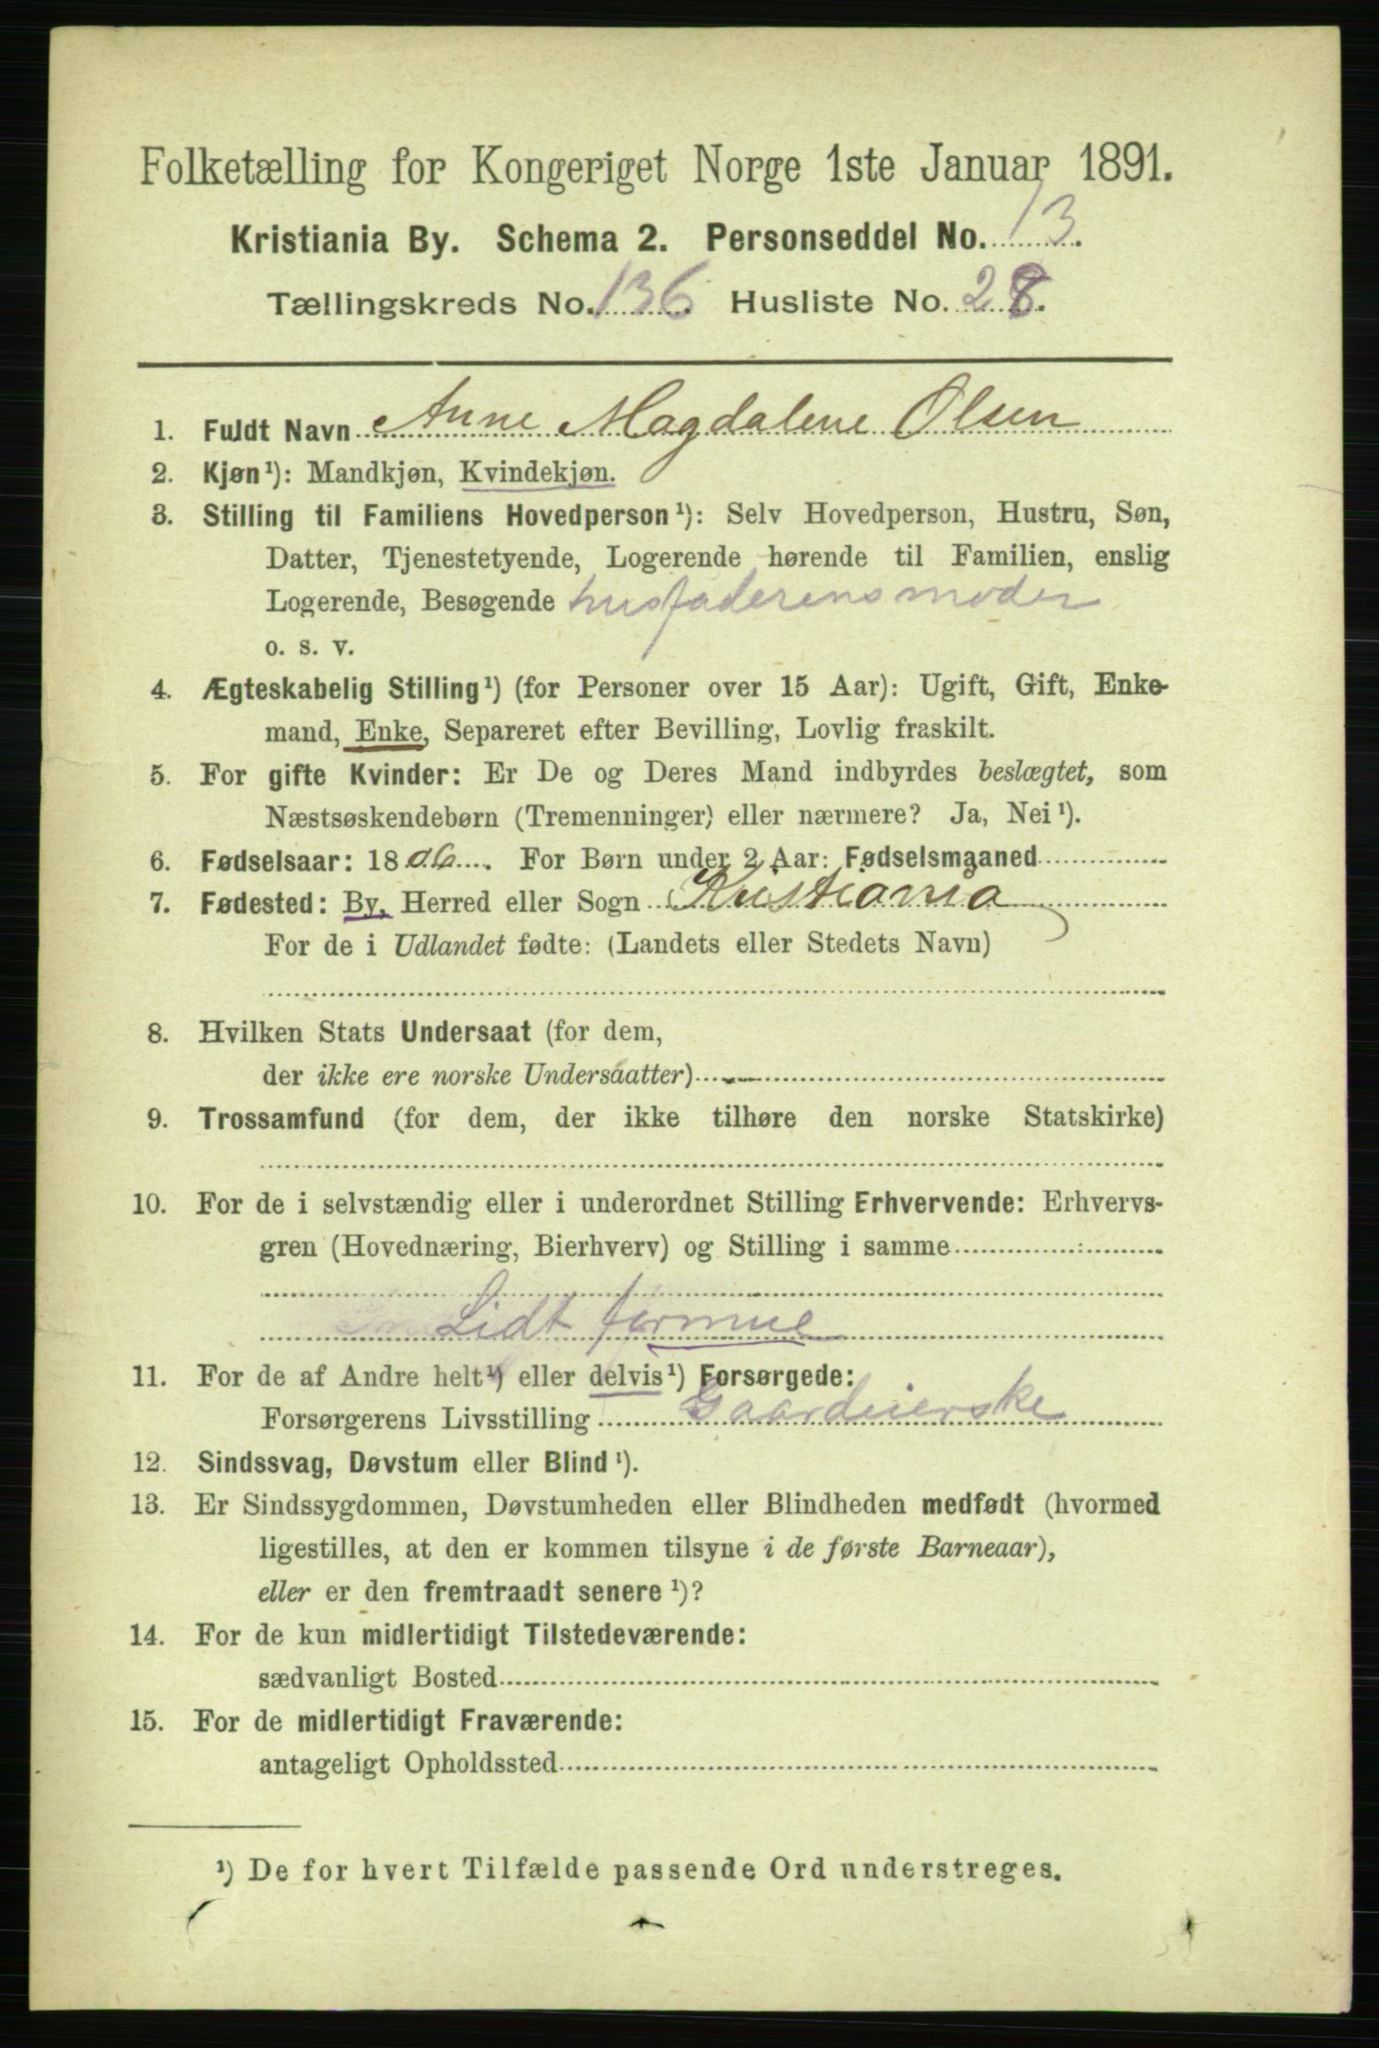 Folketælling for Kongeriget Norge 1ste Januar 1891.
Kristiania By. Schema 2. Personseddel No. 13.
Tællingskreds No. 136. Husliste No. 28.
1. Fuldt Navn Anne Magdalene Olsen
2. Kjøn¹): Mandkjøn, Kvindekjøn.
3. Stilling til Familiens Hovedperson¹): Selv Hovedperson, Hustru, Søn,
Datter, Tjenestetyende, Logerende hørende til Familien, enslig
Logerende, Besøgende husfaderens moder
o. s. v.
4. Ægteskabelig Stilling¹) (for Personer over 15 Aar): Ugift, Gift, Enke-
mand, Enke, Separeret efter Bevilling, Lovlig fraskilt.
5. For gifte Kvinder: Er De og Deres Mand indbyrdes beslægtet, som
Næstsøskendebørn (Tremenninger) eller nærmere? Ja, Nei¹).
6. Fødselsaar: 1806. For Børn under 2 Aar: Fødselsmaaned
7. Fødested: By, Herred eller Sogn Kristiania
For de i Udlandet fødte: (Landets eller Stedets Navn)
8. Hvilken Stats Undersaat (for dem,
der ikke ere norske Undersaatter)
9. Trossamfund (for dem, der ikke tilhøre den norske Statskirke)
10. For de i selvstændig eller i underordnet Stilling Erhvervende: Erhvervs-
gren (Hovednæring, Bierhverv) og Stilling i samme
Lidt formue
11. For de af Andre helt¹) eller delvis¹) Forsørgede:
Forsørgerens Livsstilling Gaardeierske
12. Sindssvag, Døvstum eller Blind¹).
13. Er Sindssygdommen, Døvstumheden eller Blindheden medfødt (hvormed
ligestilles, at den er kommen tilsyne i de første Barneaar),
eller er den fremtraadt senere¹)?
14. For de kun midlertidigt Tilstedeværende:
sædvanligt Bosted
15. For de midlertidigt Fraværende:
antageligt Opholdssted
¹) De for hvert Tilfælde passende Ord understreges.